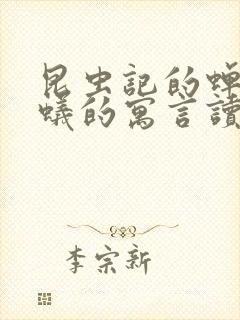 昆虫記的蟬
蟻的寓言讀
李宗新